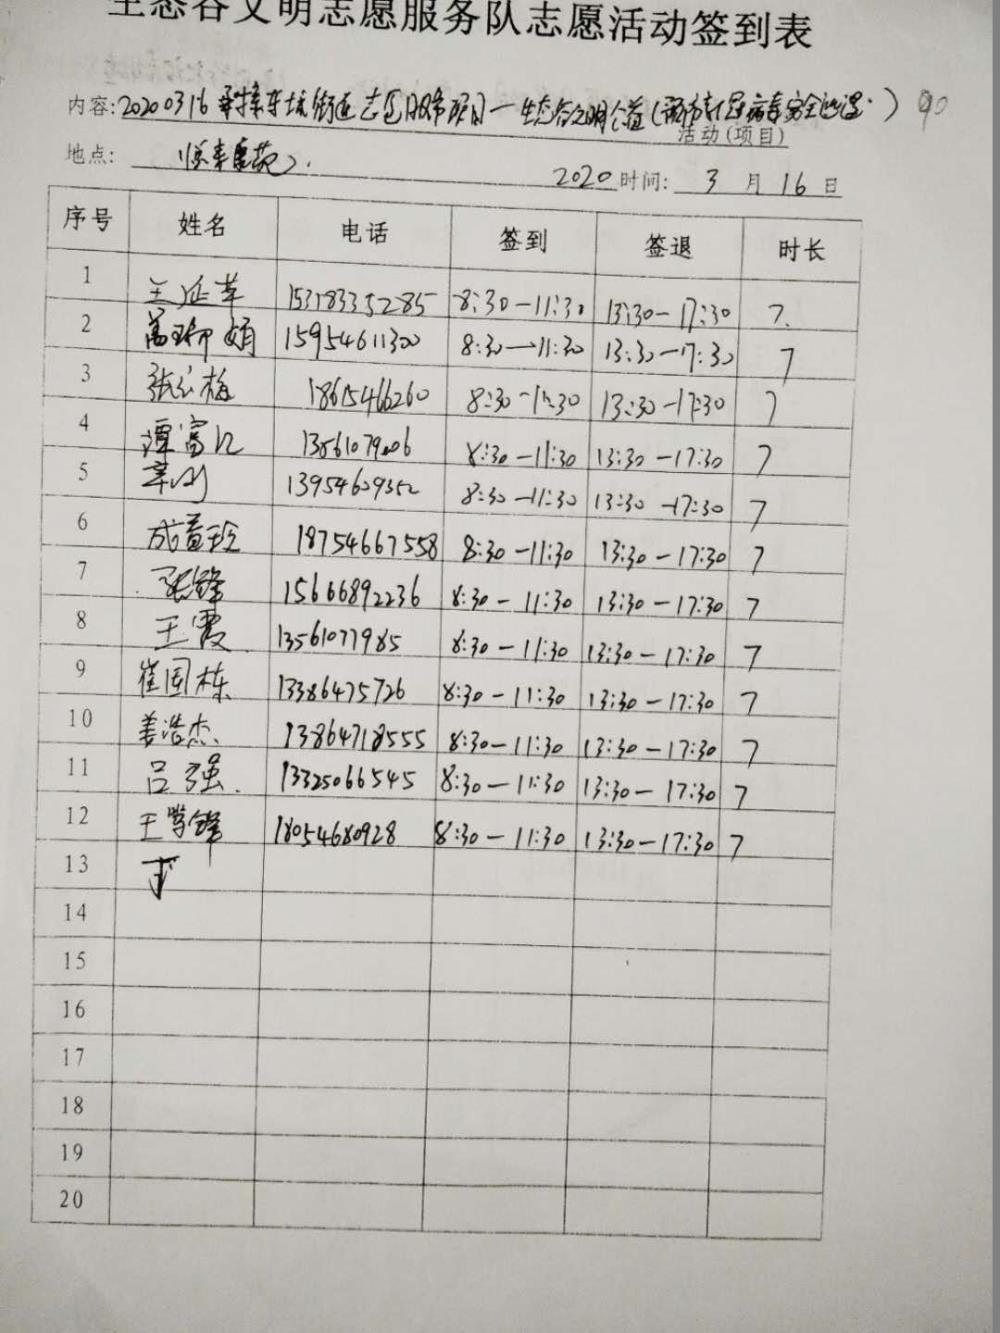 生态谷文明志愿服务队志愿活动签到表
内容: 20200316 街道志愿服务项目一生态谷文明公益( ) 90
活动(项目)
地点:
2020 时间: 3 月 16 日
序号 姓名 电话 签到 签退 时长
1 王延苹 15318335285 8:30-11:30 13:30-17:30 7.
2 15954611300 8:30-11:30 13:30-17:30 7
3 张 梅 18615466260 8:30-11:30 13:30-17:30 7
4 谭富江 13:30-17:30 8:30-11:30 7
5 辛 13954609352 8:30-11:30 13:30-17:30 7
6 成 18754667558 8:30-11:30 13:30-17:30 7
7 张锋 15666892236 8:30-11:30 13:30-17:30 7
8 王霞 13561077985 8:30-11:30 13:30-17:30 7
9 崔国栋 13386475726 8:30-11:30 13:30-17:30 7
10 姜浩杰. 13864718555 8:30-11:30 13:30-17:30 7
11 吕强. 13325066545 8:30-11:30 13:30-17:30 7
12 王 锋 18054680928 8:30-11:30 13:30-17:30 7
13
14
15
16
17
18
19
20